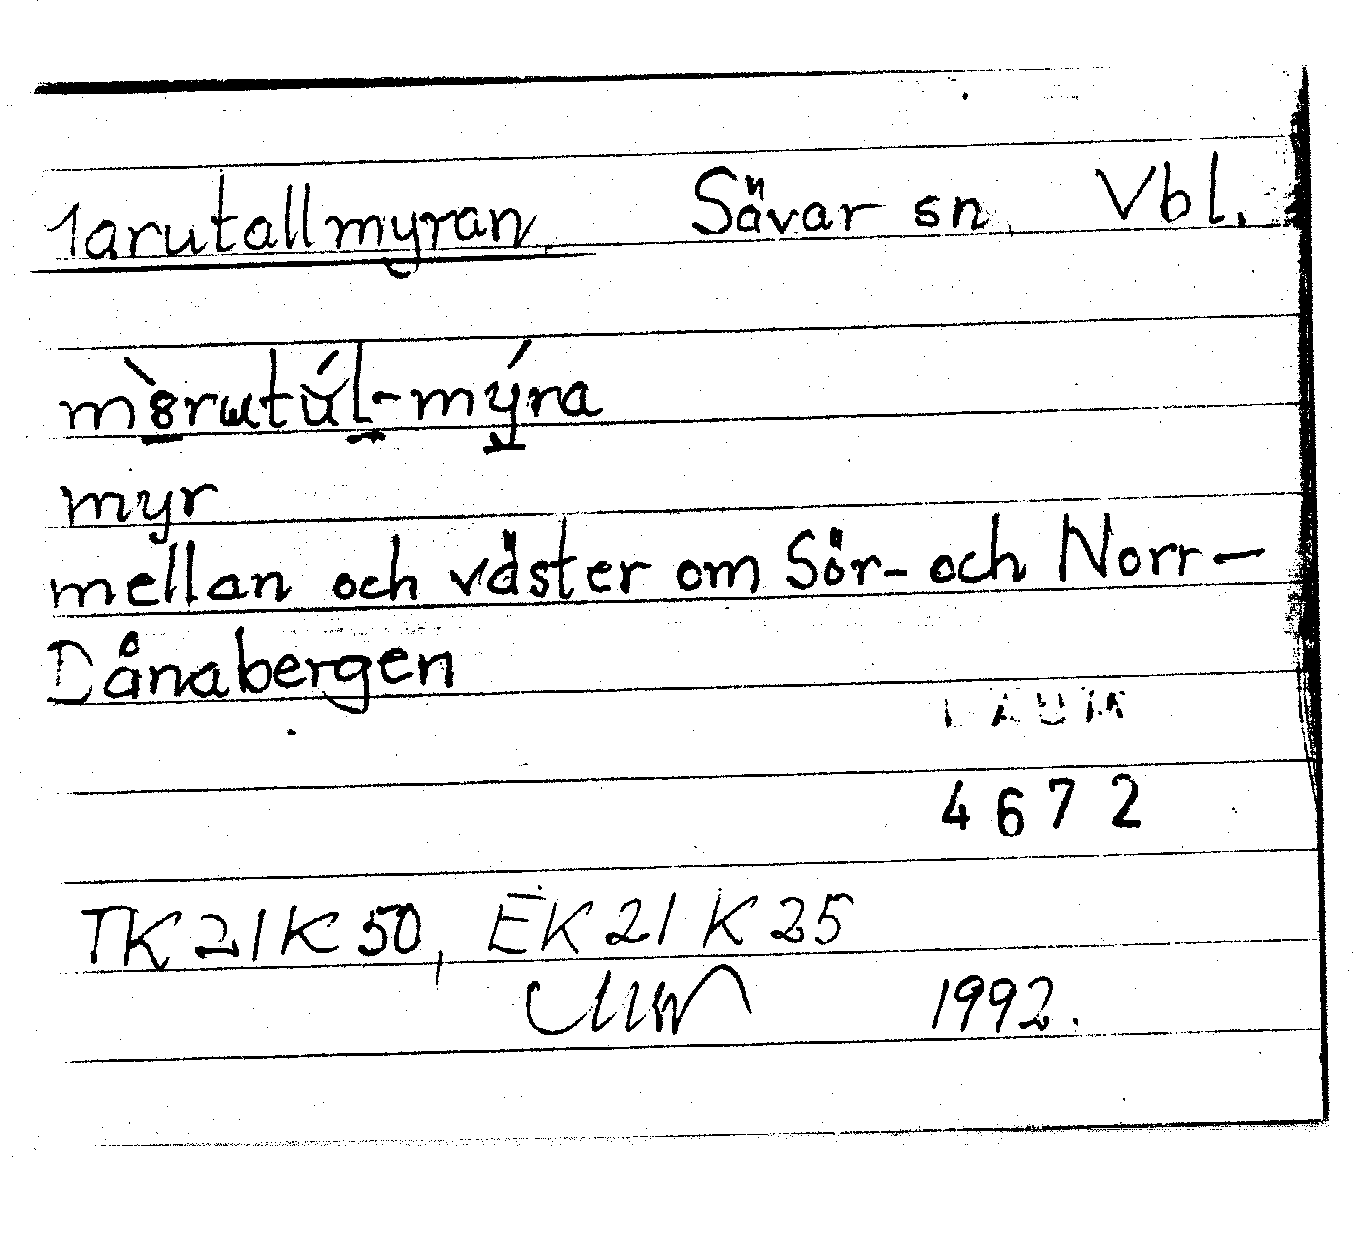 Marutallmyran. Sävar sn, Vbl.
myr
mellan och väster om Sör- och Norr-
Dånabergen
4672
TK 21 K 50, EK 21 K 25
1992.